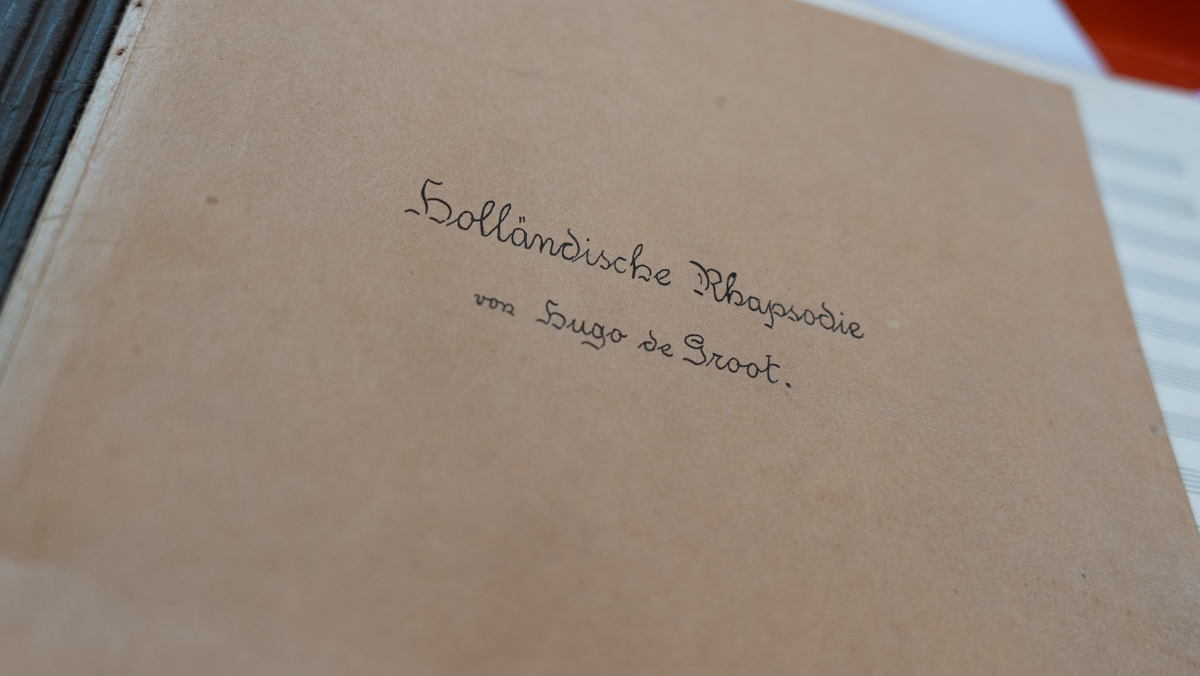 Holländische Rhapsodie
von Hugo de Groot.